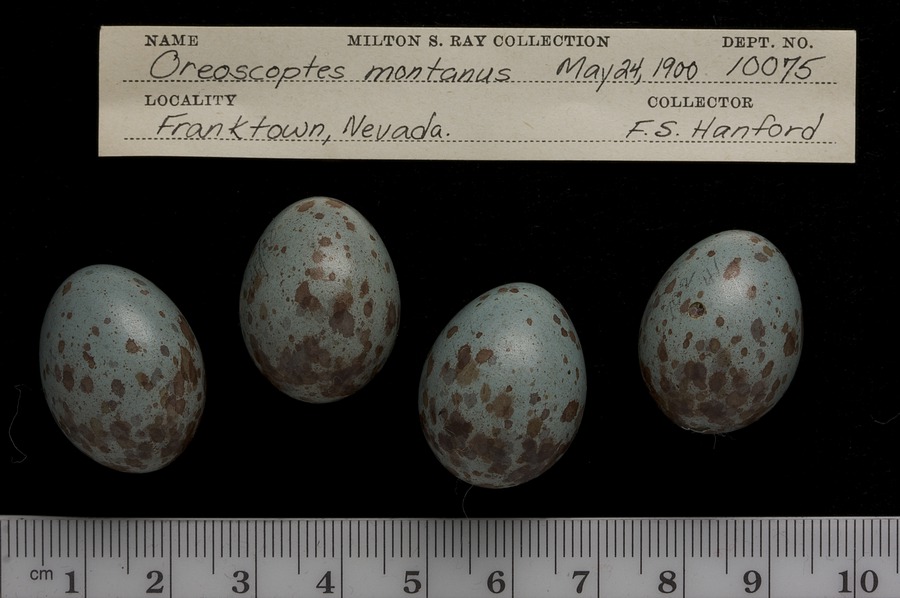 NAME MILTON S. RAY COLLECTION DEPT. NO.
Oreoscoptes montanus May 24, 1900 10075
LOCALITY COLLECTOR
Franktown, Nevada. F.S. Hanford
cm 1 2 3 4 5 6 7 8 9 10